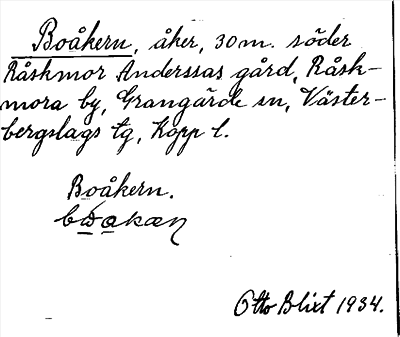 Boåkern, åker, 30 m. söder
Råskmor Anderssas gård, Råsk-
mora by, Grangärde sn, Väster-
bergslags tg, Kopp l.
Boåkern.
Otto Blixt 1934.